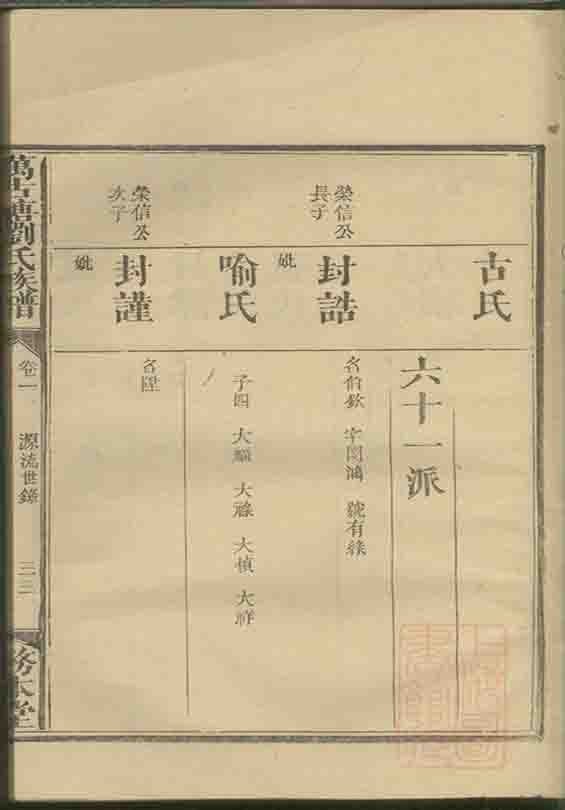 古氏
六十一派
榮信公
長子
封誥
名伯欽 字開鴻 號有緣
妣
喻氏
子四 大 大祿 大楨 大祥
榮信公
次子
封謹
名陞
妣
萬古塘劉氏族譜
卷一
源流世錄
三二
務本堂